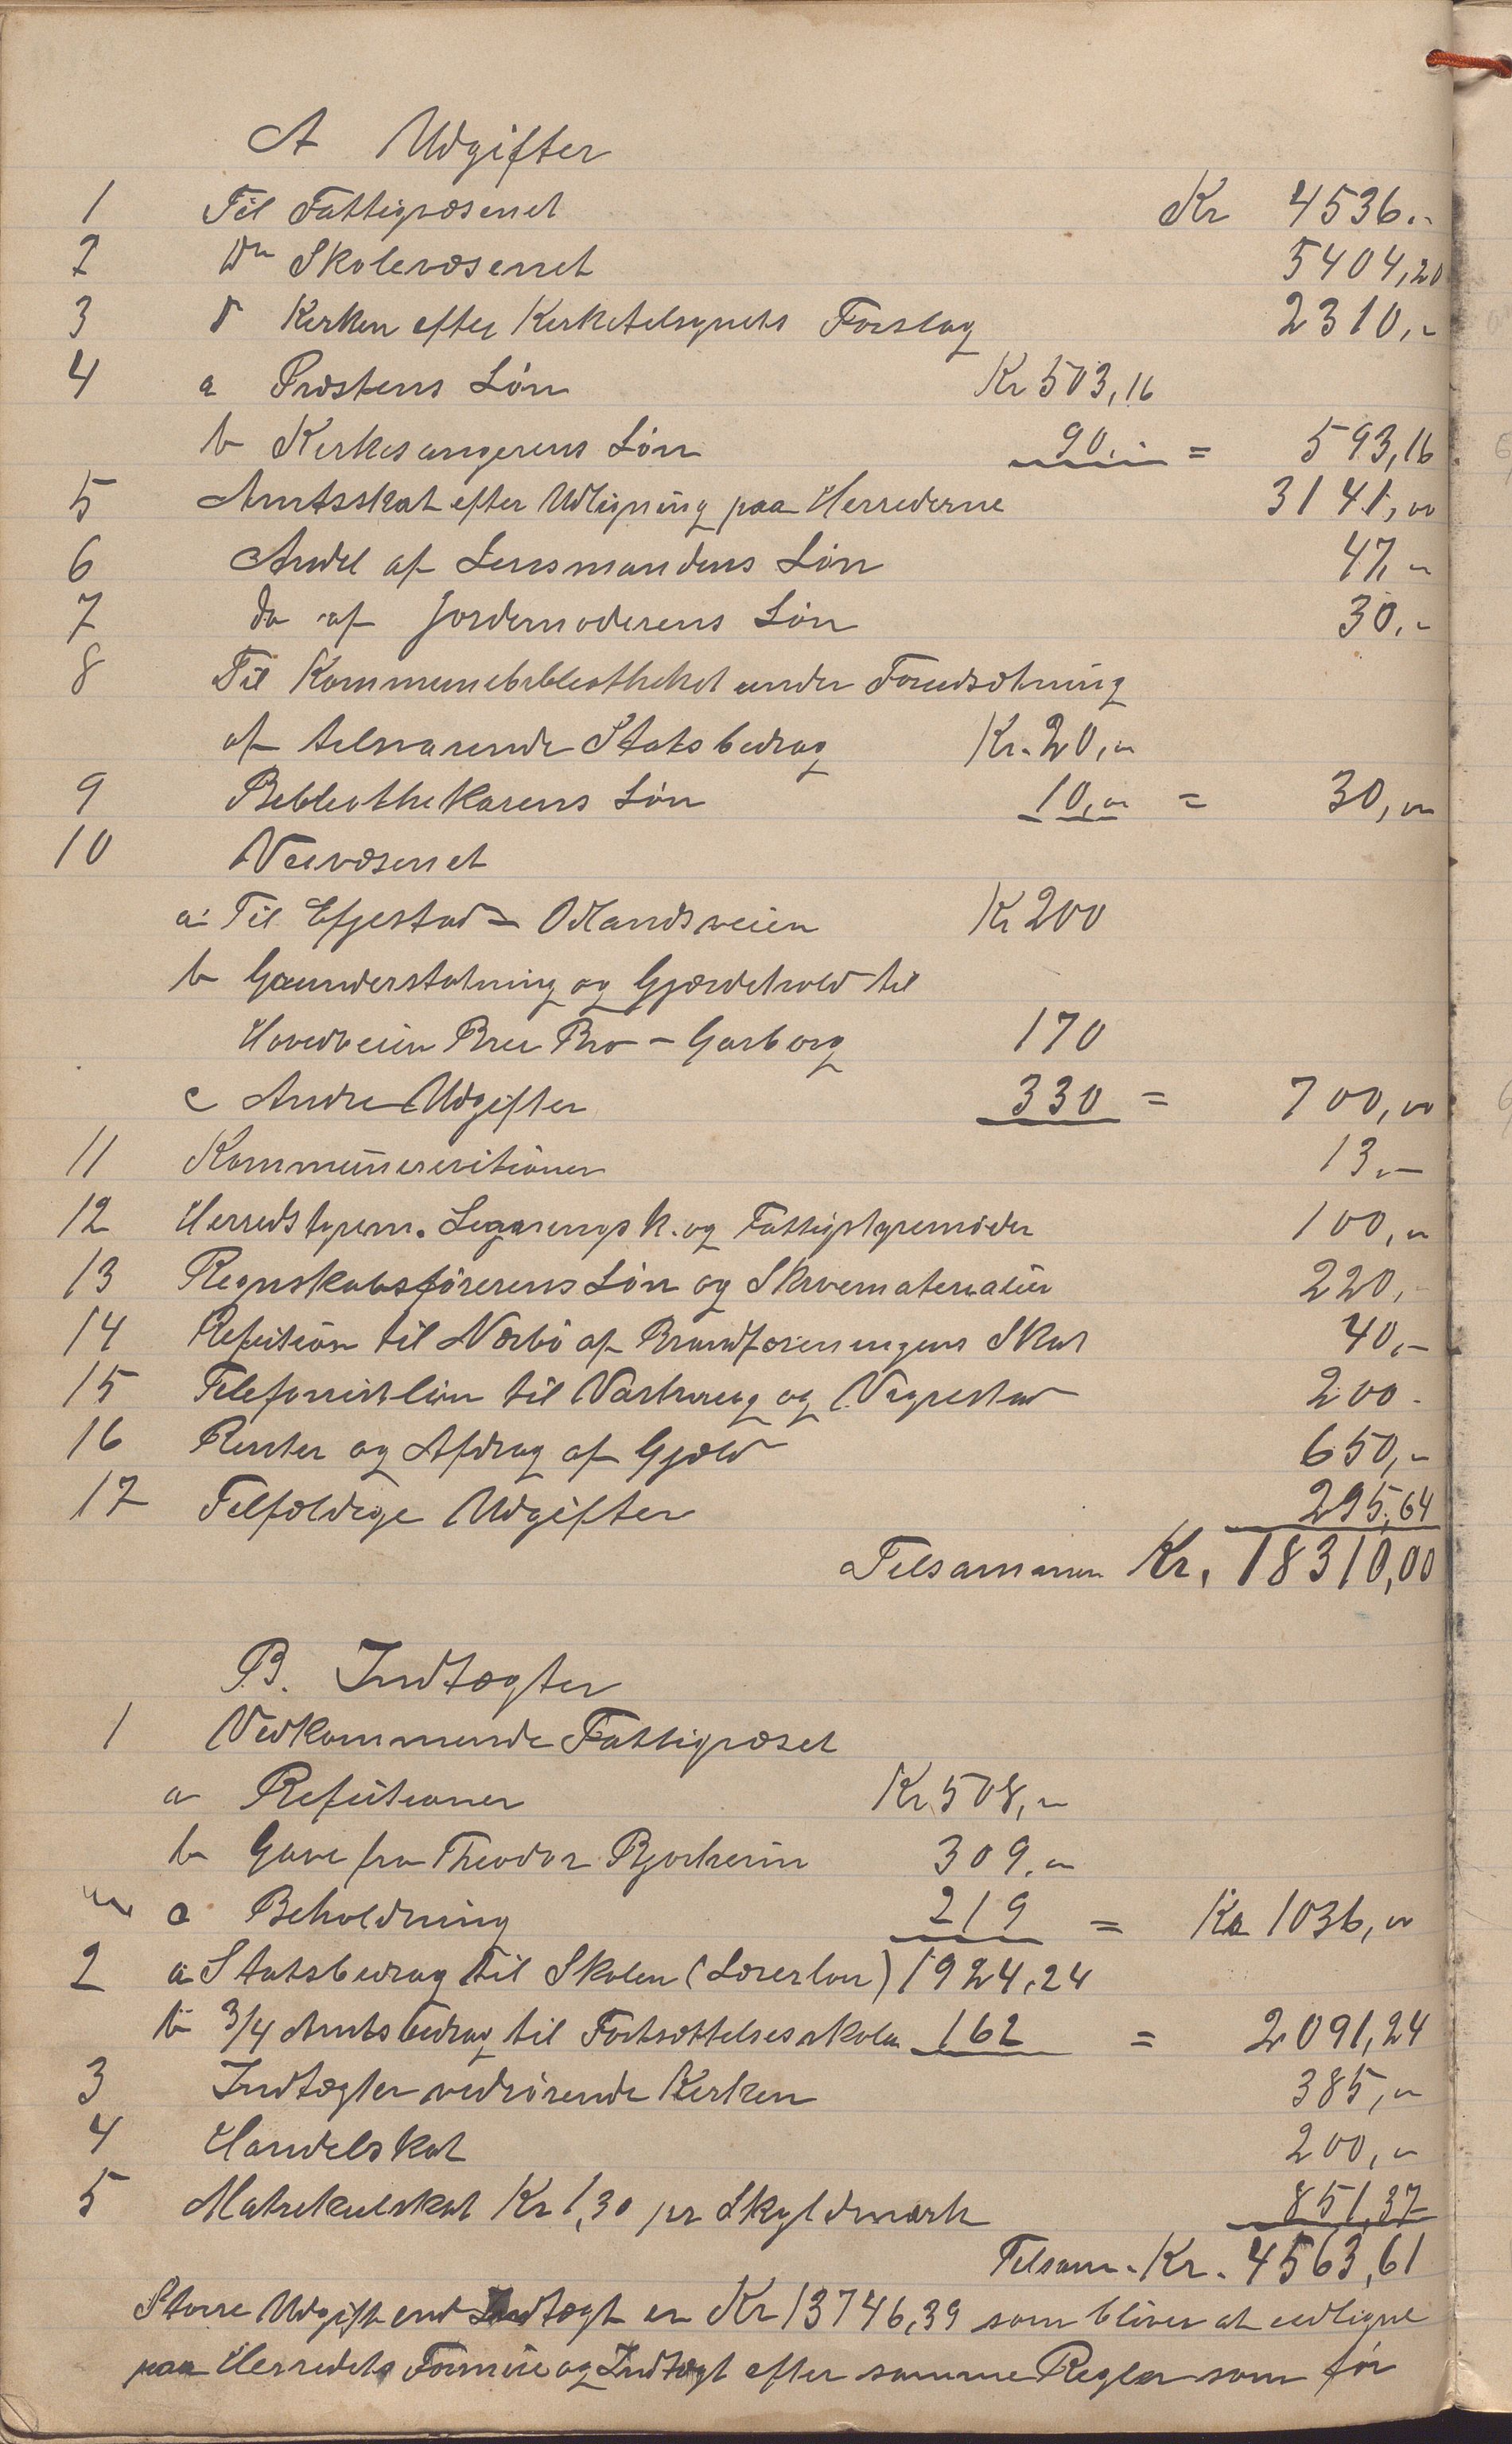 A Udgifter
1 Til Fattigvæsenet Kr 4536.-
2 Do Skolevæsenet 5404,20
3 D Kirken efter Kirketilsynets Forslag 2310,-
4 a Prestens Løn Kr 503,16
b Kirkesangerens Løn 90.- = 593,16
5 Amtsskat efter Udligning paa Herrederne 3141,00
6 Andel af Lensmandens Løn 47,-
7 Do af Jordemoderens Løn 30.-
8 Til Kommunebibliotheket under Forudsætning
af tilsvarende Statsbidrag Kr. 20,-
9 Bibliothekarens Løn 10,- = 30,00
10 Veivæsenet
a Til Efjestad - Odlandsveien Kr 200
b Grunderstatning og Gjærdehold til
Hovedveien Bru Bro - Garborg 170
c Andre Udgifter 330 = 700,00
11 Kommunerevitioner 13.-
12 Herredstyrem. Ligningsk. og Fattigstyremøder 100,-
13 Regnskabsførerens Løn og Skrivematerialier 220,-
14 Refution til Nærbø af Brandforeningens Skat 40,-
15 Telefonistløn til Varhoug og Vigrestad 200.
16 Renter og Afdrag af Gjæld 650,-
17 Tilfældige Udgifter 295,64
Tilsammen Kr. 18310,00
B. Indtægter
1 Vedkommende Fattigvæset
a Refutioner Kr 508,-
b Gave fra Theodor Bjorheim 309.-
c Beholdning 219 = Kr 1036,00
2 a Statsbidrag til Skolen (Lærerløn) 1924,24
b 3/4 Amtsbidrag til Fortsættelsesskolen 162 = 2091,24
3 Indtægter vedrørende Kirken 385,-
4 Handelskat 200,-
5 Matrikulskat Kr 1,30 pr Skyldmark 851,37
Tilsam. Kr. 4563,61
Større Udgift end Indtægt er Kr 13746,39 som bliver at udligne
paa Herredets Formue og Indtægt efter samme Regler som før